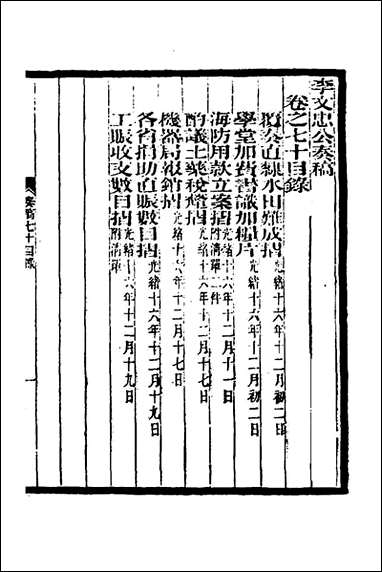 李文忠公奏稿
卷之七十目錄
覆奏直隸水田難成摺 光緒十六年十二月初二日
學堂加費書識加糧片 光緒十六年十二月初二日
海防用款立案摺 附清單二件 光緒十六年十二月十一日
酌議土藥稅釐摺 光緒十六年十二月十七日
機器局報銷摺 光緒十六年十二月十七日
各省捐助直賑數目摺 光緒十六年十二月十九日
工賑收支數目摺 附清單 光緒十六年十二月十九日
奏稿七十目錄
一